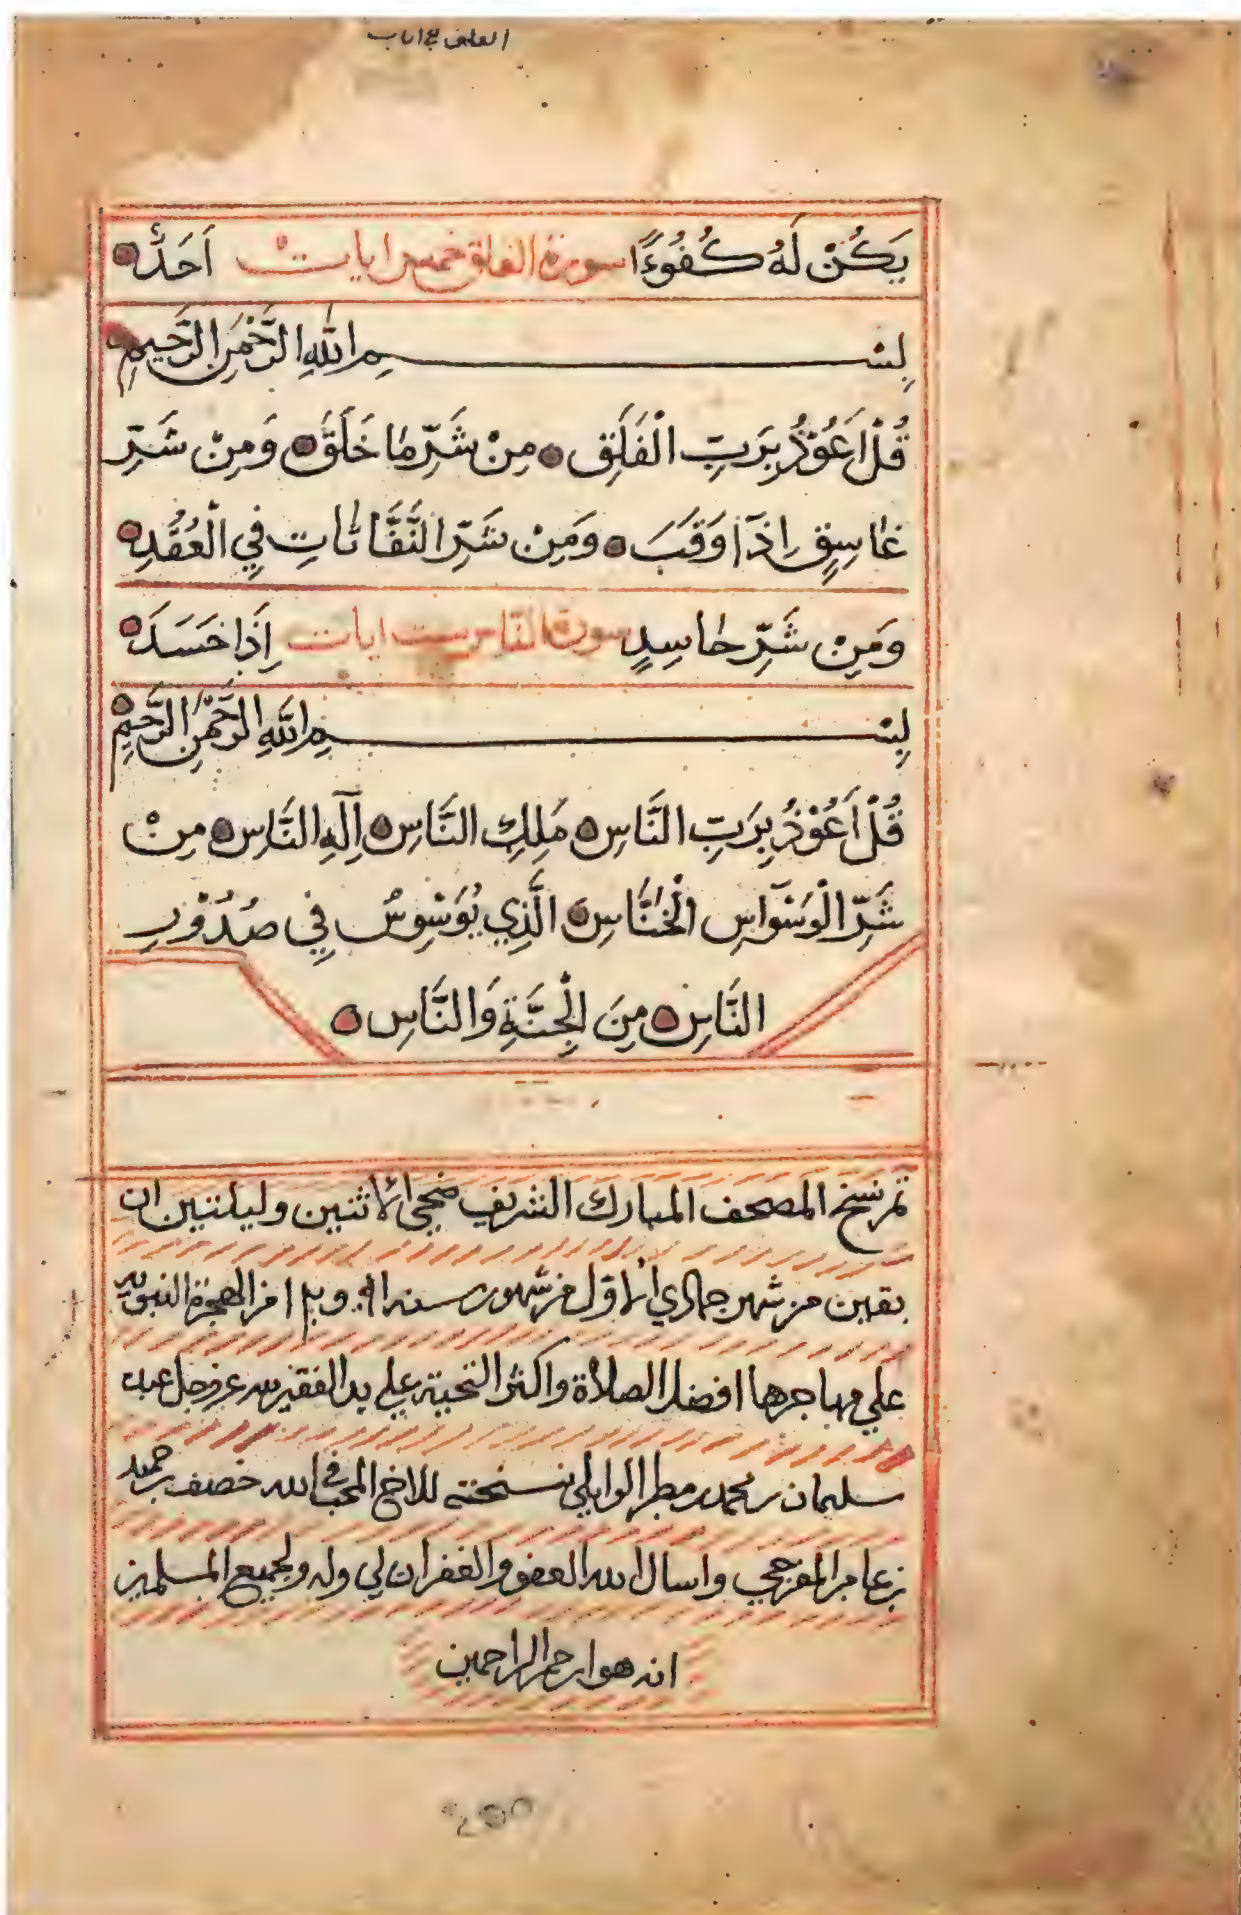 يَكُنْ لَهُ كُفُوءًا سورة الفلق خمس ايات اَحَدٌ
بِسْمِ اللّٰهِ الرَّحْمٰنِ الرَّحِيمِ
قُلْ اَعُوْذُ بِرَبِّ الْفَلَقِ مِنْ شَرِّ مَا خَلَقَ وَمِنْ شَرِّ
غَاسِقٍ اِذَا وَقَبَ وَمِنْ شَرِّ النَّفَّاثَاتِ فِي الْعُقَدِ
وَمِنْ شَرِّ حَاسِدٍ سورة الناس ست ايات اِذَا حَسَدَ
بِسْمِ اللّٰهِ الرَّحْمٰنِ الرَّحِيمِ
قُلْ اَعُوْذُ بِرَبِّ النَّاسِ مَلِكِ النَّاسِ اِلٰهِ النَّاسِ مِنْ
شَرِّ الْوَسْوَاسِ الْخَنَّاسِ الَّذِي يُوَسْوِسُ فِي صُدُوْرِ
النَّاسِ مِنَ الْجِنَّةِ وَالنَّاسِ
تم نسخ المصحف المبارك الشريف ضحى الاثنين وليلتين ان
بقين من شهر جمادي الاول من شهور سنه من الهجرة النبويه
علي مهاجرها افضل الصلاة واكثر التحية علي يد الفقير لله عز وجل عبده
سليمان بن محمد بن مطر الوايلي نسخته للاخ المحب في الله خصف بن حميد
بن عامر المفرجي واسال الله العفو والغفران لي وله ولجميع المسلمين
انه هو ارحم الراحمين